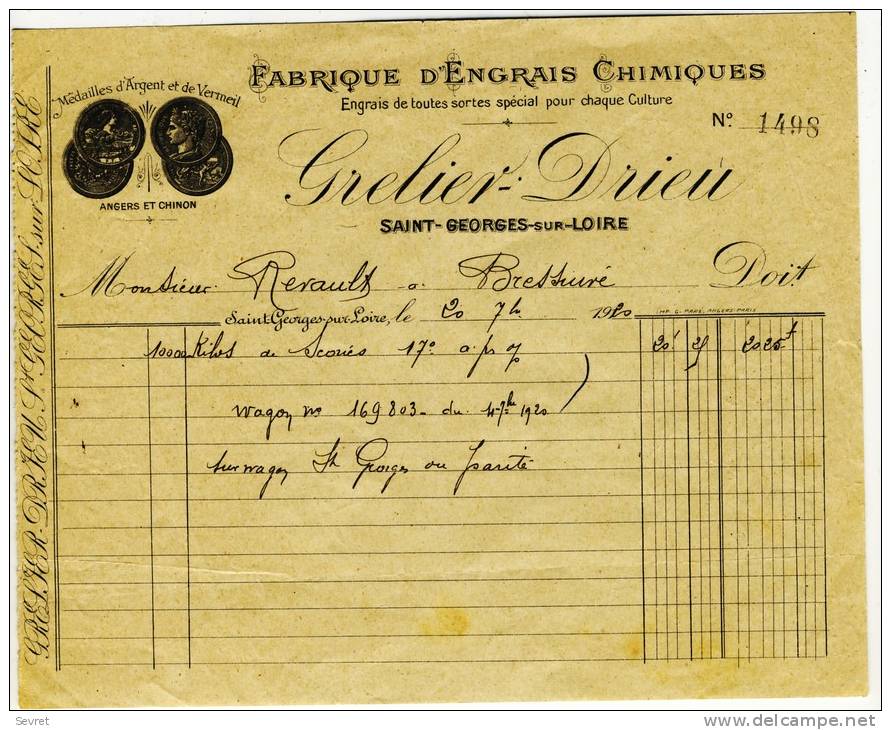 Médailles d'Argent et de Vermeil
ANGERS ET CHINON
FABRIQUE D'ENGRAIS CHIMIQUES
Engrais de toutes sortes spécial pour chaque Culture
N° 1498
Grelier-Drieu
SAINT-GEORGES-SUR-LOIRE
Monsieur Revault a Bressuire Doit
Saint-Georges-sur-Loire, le 20 7bre 1920
IMP. G. PARÉ, ANGERS-PARIS
10000 Kilos de Scories 17° a 20f 25 2025f
Wagon n° 169803 du 4-7bre 1920
sur wagon St Georges ou parité
GRELIER-DRIEU St GEORGES-sur-LOIRE
Sevret
www.delcampe.net